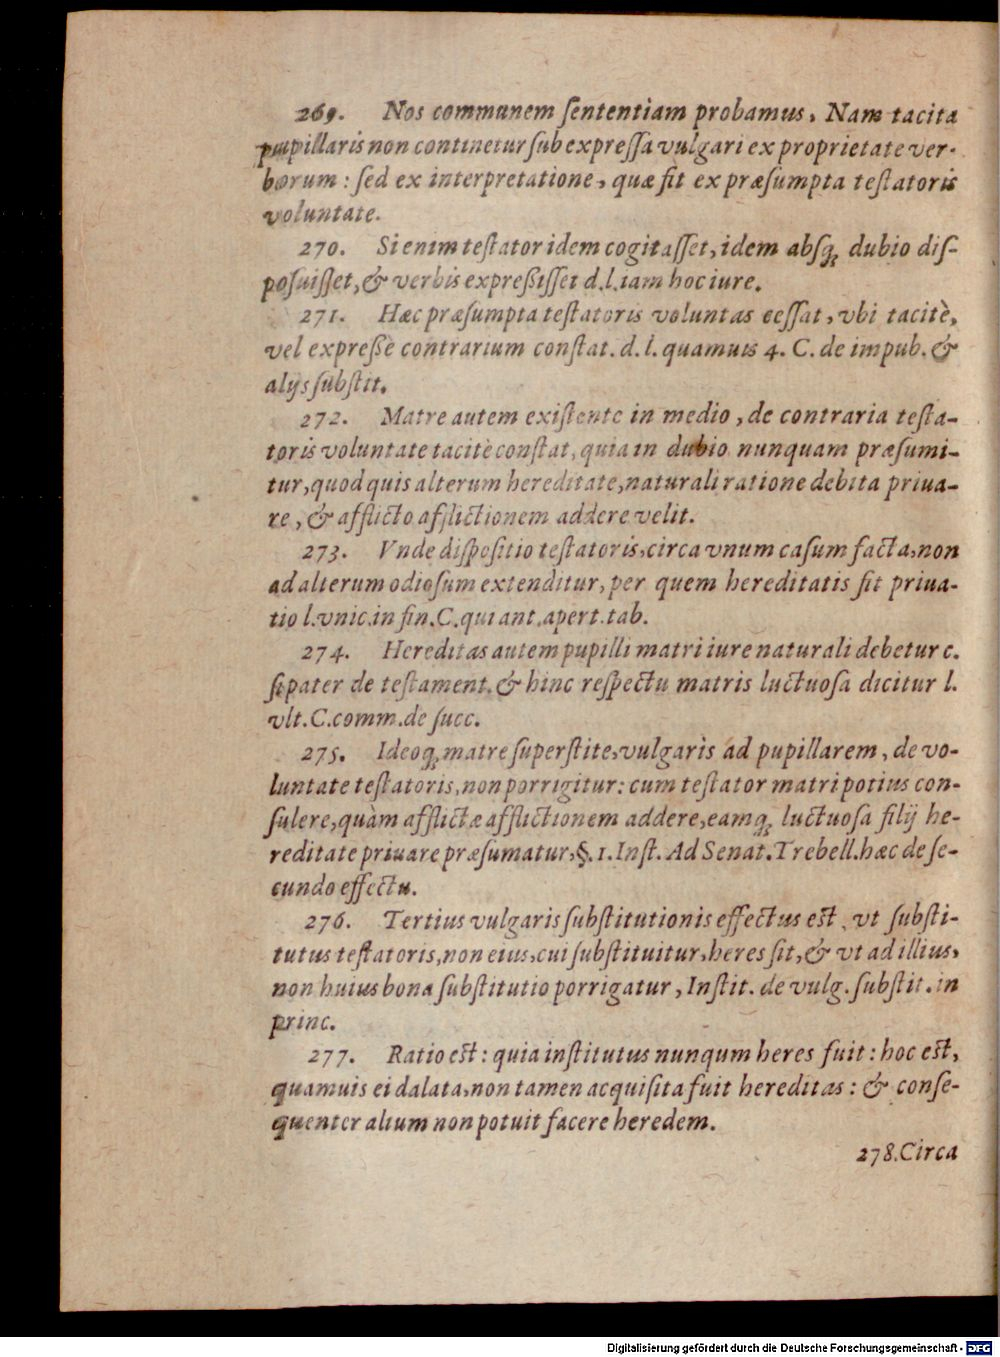 269. Nos communem ſententiam probamus, Nam tacita
pupillaris non continetur ſub expreſſa vulgari ex proprietate ver-
borum: ſed ex interpretatione, quæ fit ex præſumpta teſtatoris
voluntate.
270. Si enim teſtator idem cogitaſſet, idem abſq; dubio diſ-
poſuiſſet, & verbis expreßiſſet d.l.iam hoc iure.
271. Hæc præſumpta teſtatoris voluntas ceſſat, vbi tacitè,
vel expreßè contrarium conſtat. d. l. quamuis 4. C. de impub. &
alijs ſubſtit.
272. Matre autem exiſtente in medio, de contraria teſta-
toris voluntate tacitè conſtat, quia in dubio nunquam præſumi-
tur, quod quis alterum hereditate, naturali ratione debita priua-
re, & afflicto afflictionem addere velit.
273. Vnde diſpoſitio teſtatoris, circa vnum caſum facta, non
ad alterum odioſum extenditur, per quem hereditatis fit priua-
tio l.vnic.in fin.C.qui ant.apert.tab.
274. Hereditas autem pupilli matri iure naturali debetur c.
ſi pater de teſtament. & hinc reſpectu matris luctuoſa dicitur l.
vlt.C.comm.de ſucc.
275. Ideoq; matre ſuperſtite, vulgaris ad pupillarem, de vo-
luntate teſtatoris, non porrigitur: cum teſtator matri potius con-
ſulere, quàm afflictæ afflictionem addere, eamq; luctuoſa filij he-
reditate priuare præſumatur, §. 1. Inſt. Ad Senat. Trebell. hæc de ſe-
cundo effectu.
276. Tertius vulgaris ſubſtitutionis effectus eſt, vt ſubſti-
tutus teſtatoris, non eius, cui ſubſtituitur, heres ſit, & vt ad illius,
non huius bona ſubſtitutio porrigatur, Inſtit. de vulg. ſubſtit. in
princ.
277. Ratio eſt: quia inſtitutus nunqum heres fuit: hoc eſt,
quamuis ei dalata, non tamen acquiſita fuit hereditas: & conſe-
quenter alium non potuit facere heredem.
278. Circa
Digitalisierung gefördert durch die Deutsche Forschungsgemeinschaft - DFG